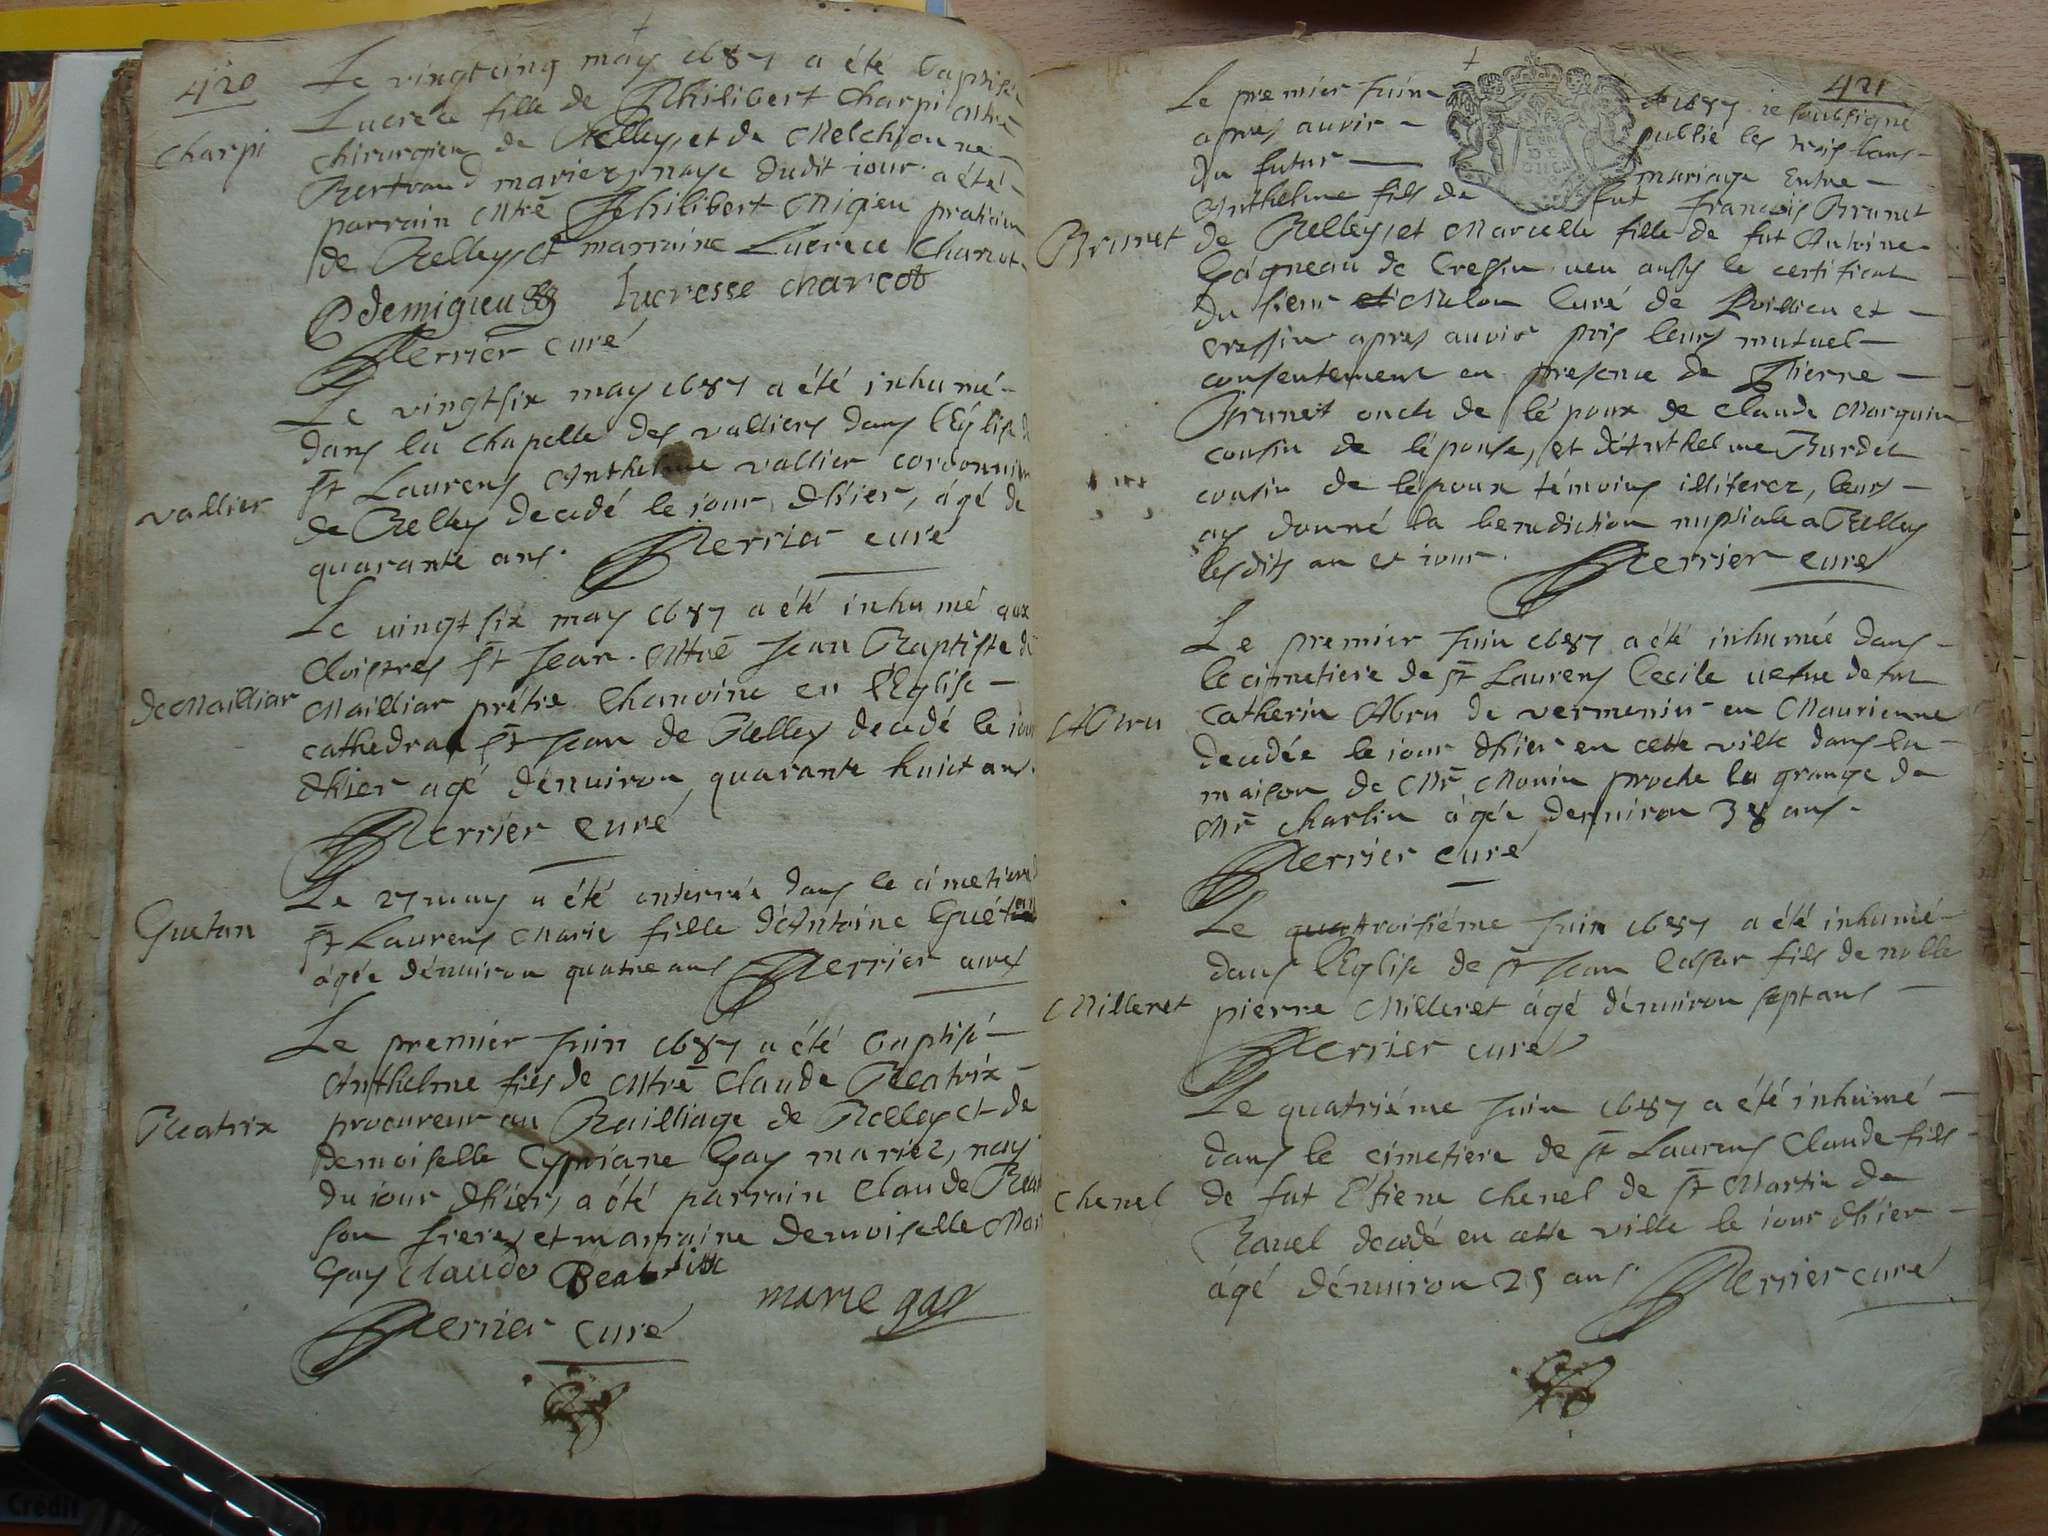 420
Le vingtcinq may 1687 a été baptisée
Charpi
Lucrèce fille de Philibert Charpi mtre
chirurgien de Belley, et de Melchionne
Bertrand mariez, naye dudit iour a été
parrain mtre Philibert Migieu praticien
de Belley et marraine Lucrece Charcot
demigieu Lucresse charcot
Perrier curé
Le vingtsix may 1687 a été inhumé
dans la Chapelle des valliers dans l'Eglise de
vallier
st Laurens Anthelme vallier cordonnier
de Belley decedé le iour d'hier, âgé de
quarante ans. Perrier curé
Le vingt six may 1687 a été inhumé aux
cloistres st Jean. Mtre Jean Baptiste de
DeMailliar
Mailliar prétre Chanoine en l'Eglise
cathedral st Jean de Belley decedé le iour
d'hier agé dénuiron quarante huict ans.
Perrier curé
Le 27 may a été enterrée dans le cimetiere
Guetan
st Laurens Marie fille d'Antoine Guétan
âgée dénuiron quatre ans Perrier curé
Le premier Juin 1687 a été baptisé
Anthelme fils de Mtre Claude Beatrix
Beatrix
procureur au Bailliage de Belley et de
demoiselle Cypriane Gay mariez, nay
du iour d'hier, a été parrain Claude
son frere, et marraine demoiselle
Gay Claude Beatrix
marie gay
Perrier curé
421
Le premier Juin 1687 ie soubsigné
apres auoir publié les trois bans
du futur mariage Entre
Anthelme fils de fut François Brunet
Brunet
de Belley, et Marcelle fille de fut Antoine
Gagneau de Cressin ueu aussy le certificat
du sieur Melon Curé de Poillieu et
cressin apres auoir pris leurs mutuel
consentement en presence de Pierre
Brunet oncle de lépoux de Claude Marquin
cousin de lépouse, et d'Anthelme Burdet
cousin de lépoux témoins illiterez, leurs
ay donné la benediction nuptiale a Belley
lesdits an et iour. Perrier curé
Le premier Juin 1687 a été inhumée dans
le cimetiere de st Laurens Cecile uefue de fut
Abru
Catherin Abru de vermenin en Maurienne
decedée le iour d'hier en cette ville dans la
maison de Mr Monin proche la grange de
Mr Charlin âgée denuiron 38 ans.
Perrier curé
Le qua troisiéme Juin 1687 a été inhumé
dans l'Eglise de st Jean Cesar fils de noble
Milleret
pierre Milleret âgé dénuiron sept ans
Perrier curé
Le quatriéme Juin 1687 a été inhumé
dans le cimetiere de st Laurens Claude fils
Chenel
de fut Etiene Chenel de st Martin de
Bauel decedé en cette ville le iour d'hier
âgé dénuiron 25 ans. Perrier curé